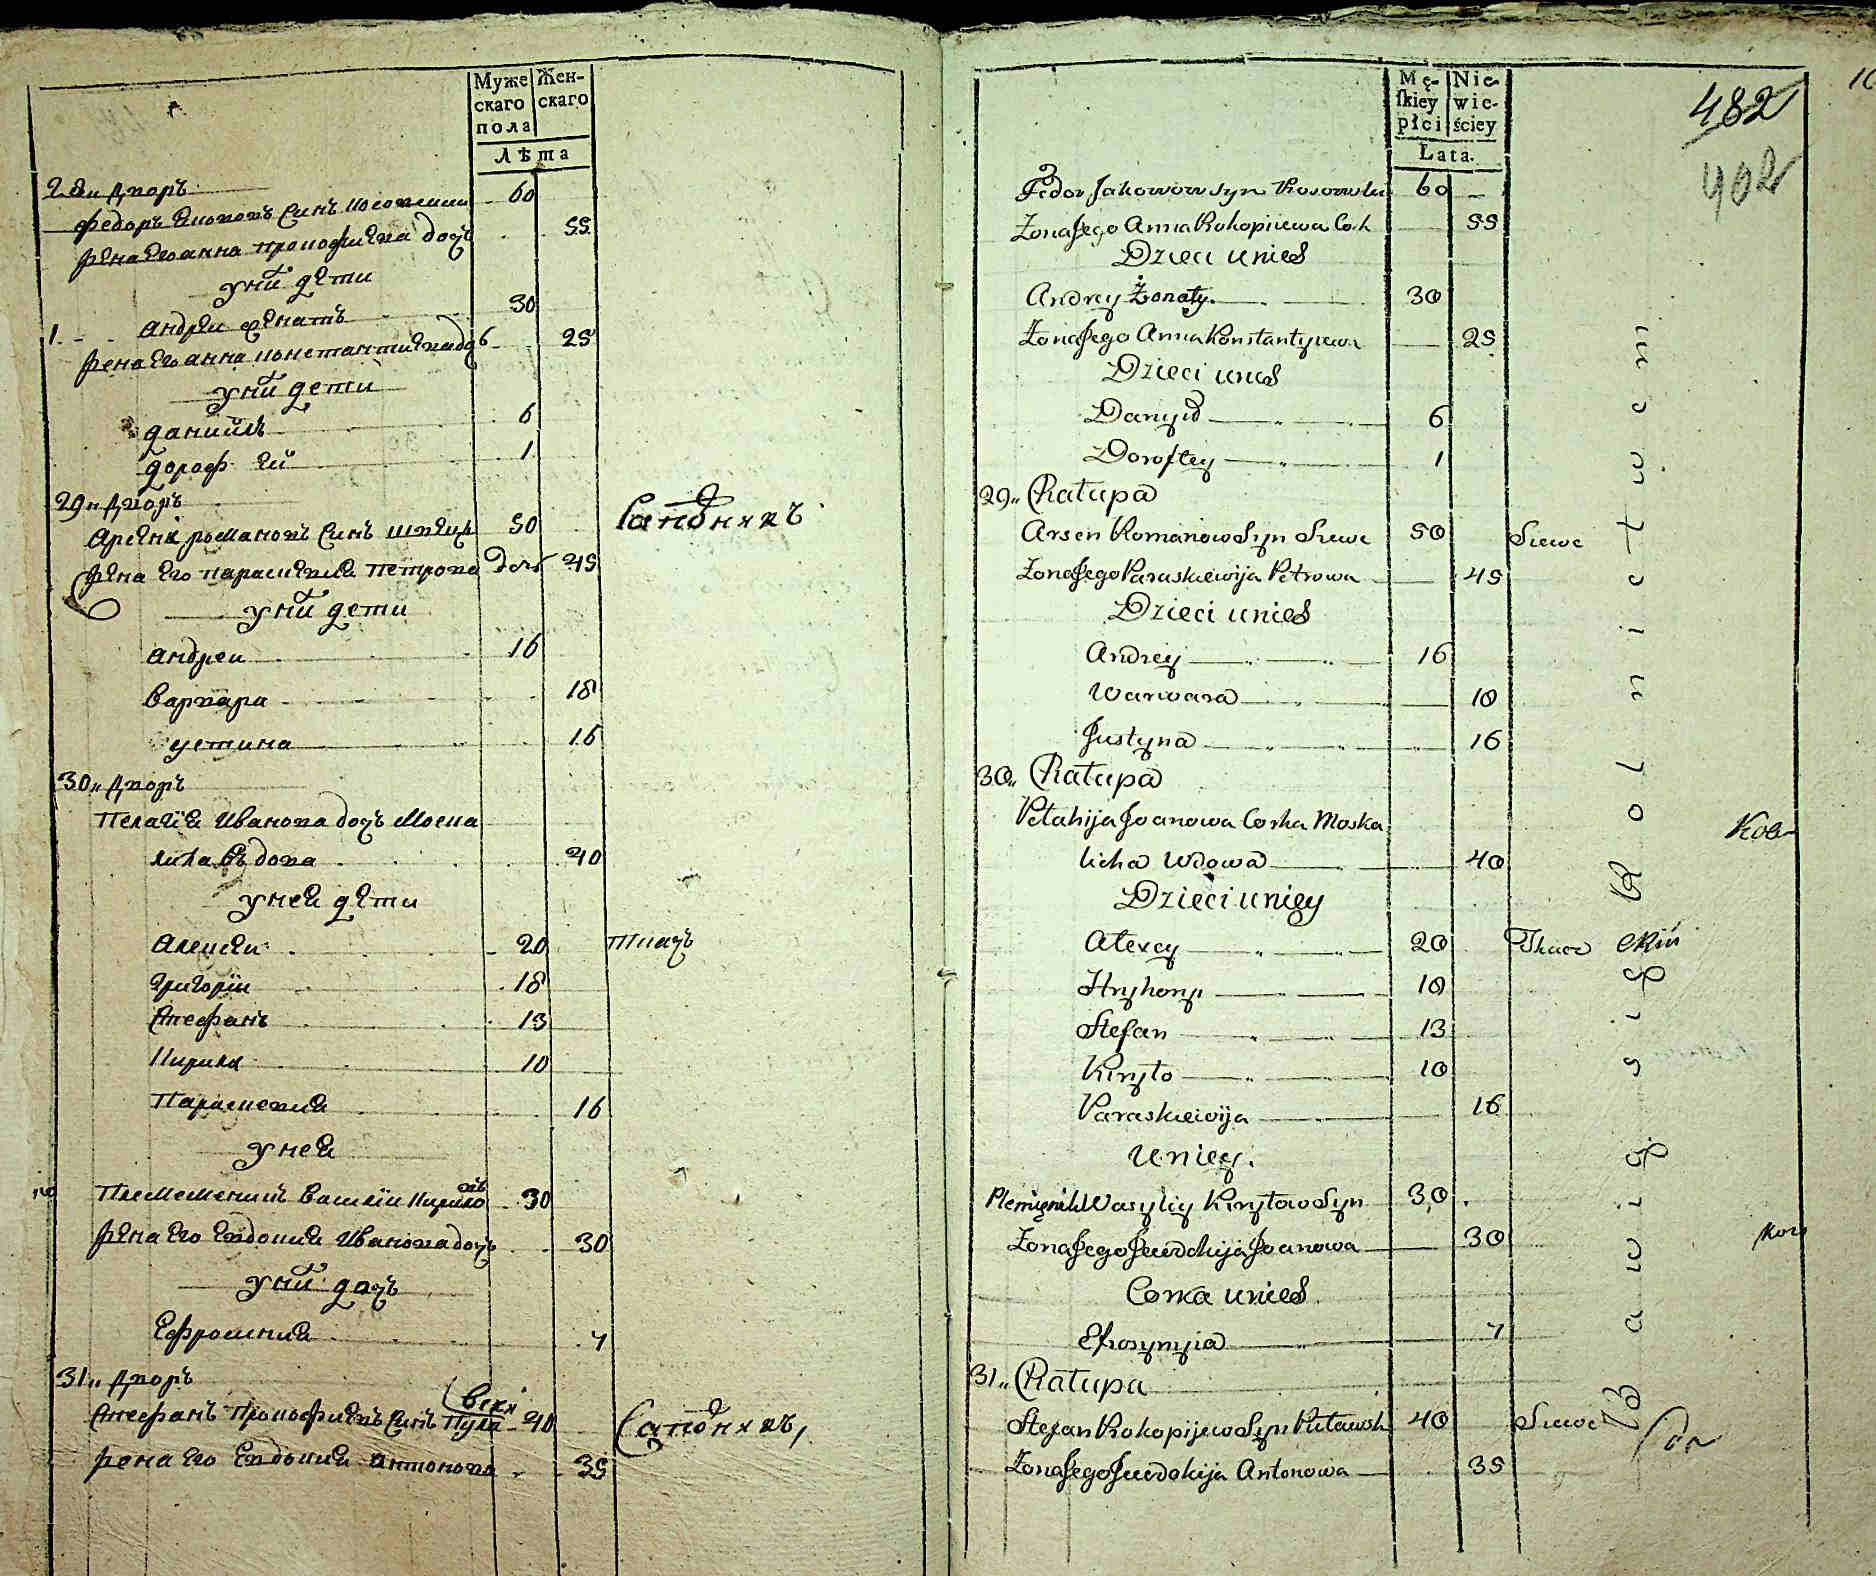 Муже
скаго
пола
Жен-
скаго
Лѣта
28 „ Дворъ
Федоръ Якововъ Синъ 60
Жена Его анна Прокофиева дочъ 55
у ний дети
1. Андрей женатъ 30
Жена Его анна константиева до 25
у ний дети
Данийлъ 6
Дорофтей 1
29 „ Дворъ
Арсений романовъ Синъ швецъ 50 Сапожникъ
Жена Его параскевия петрова дочъ 45
у ний дети
андреи 16
варвара 18
устина 16
30 „ Дворъ
Пелагия Иванова дочъ Моска
лиха вдова 40
у ней дети
Алексей 20 ткачъ
Григорий 18
Стефанъ 13
Кирила 10
Параскевия 16
у ней
Племеменикъ василий Кириловъ 30
Жена Его Евдокия Иванова дочъ 30
у ний дочъ
Ефросиния 7
31 „ Дворъ
Стефанъ Прокофиевъ Синъ Пулавски 40 Сапожникъ,
Жена Его Евдокия Антонова 35
Mę-
ſkiey
płci
Nie-
wie-
ściey
Lata.
482
402
Fedor Jakowow Syn 60
Zona Jego Anna Prokopiiewa Cork 55
Dzieci u nich
Andrey Żonaty 30
Zona Jego Anna Konstantyiewa 25
Dzieci u nich
Danyło 6
Doroftey 1
29 „ Chałupa
Arsen Romanow Syn Szewc 50 Szewc
Zona Jego Paraskiewija Petrowa 45
Dzieci u nich
Andrey 16
Warwara 18
Justyna 16
30 „ Chałupa
Pelahija Joanowa Corka Moska
licha Wdowa 40
Dzieci u niey
Alexey 20 Tkacz
Hryhory 18
Stefan 13
Kiryło 10
Paraskiewija 16
u niey.
Plemięnik Wasyliy Kiryłow Syn 30
Zona Jego Jewdokija Joanowa 30
Corka u nich
Efrosynyia 7
31 „ Chałupa
Stefan Prokopijew Syn Puławsk 40 Szewc
Zona Jego Jewdokija Antonowa 35
Bawią się Rolnictwem